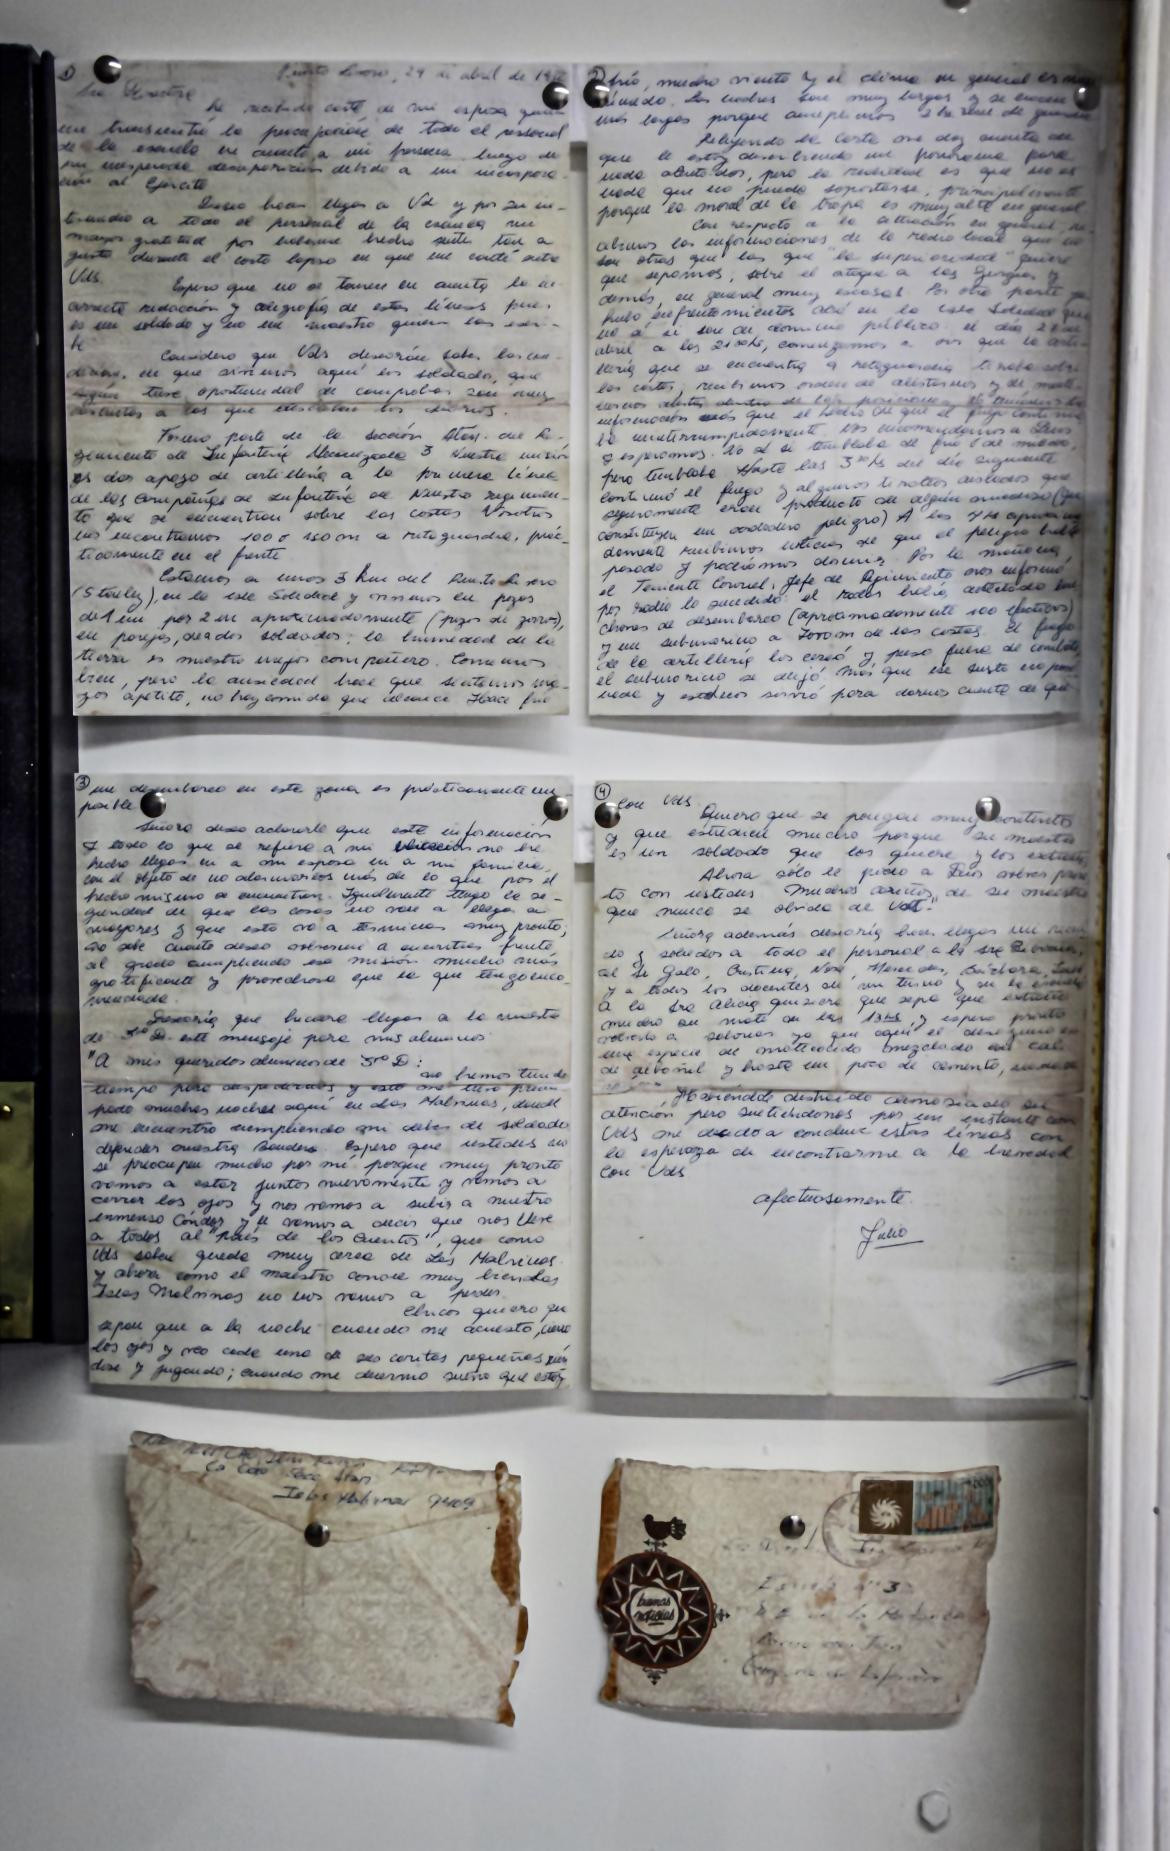 Puerto Rivero, 29 de abril de 19
Sra Rectora
He recibido carta de mi esposa quien
me transmitió la preocupación de todo el personal
de la escuela en cuanto a mi persona luego de
mi inesperada desaparición debido a mi incorpora-
ción al Ejército
Deseo hacer llegar a Vd y por su in-
termedio a todo el personal de la escuela mi
mayor gratitud por haberme hecho sentir tan a
gusto durante el corto lapso en que me conté entre
Vds.
Espero que no se tomen en cuenta la in-
correcta redacción y caligrafía de estas líneas pues
es un soldado y no un maestro quien las escri-
be
Considero que Vds desearán saber las con-
diciones en que vivimos aquí los soldados, que
según tuve oportunidad de comprobar son muy
distintas a las que describen los diarios.
Formo parte de la sección del Re-
gimiento de Infantería Mecanizado 3 Nuestra misión
es dar apoyo de artillería a la primera línea
de las Compañías de Infantería de Nuestro regimien-
to que se encuentran sobre las costas Nosotros
nos encontramos 100 o 150 m a retaguardia, prác-
ticamente en el frente
Estamos a unos 3 Km del Puerto Rivero
(Stanley), en la isla Soledad y vivimos en pozos
de 1 m por 2 m aproximadamente (pozos de zorros),
en parejas, de a dos soldados; la humedad de la
tierra es nuestro mejor compañero. Comemos
bien, pero la ansiedad hace que sintamos ma-
yor apetito, no hay comida que alcance Hace frío
frío, mucho viento y el clima en general es muy
húmedo. Las noches son muy largas y se hacen
más largas porque cumplimos 2 hs de guardia
Releyendo la carta me doy cuenta de
que le estoy describiendo un panorama para
nada alentador, pero la realidad es que no es
nada que no pueda soportarse, principalmente
porque la moral de la tropa es muy alta en general
Con respecto a la situación en general, re-
cibimos las informaciones de la radio local que no
son otras que las que "la superioridad" quiere
que sepamos, sobre el ataque a las Georgias y
demás, en general muy escasas. Por otra parte ya
hubo enfrentamientos acá en la isla Soledad que
no sé si son de dominio público. el día 28 de
abril a las 21 hs, comenzamos a oir que la arti-
llería que se encuentra a retaguardia tiraba sobre
las costas, recibimos orden de alistarnos y de mante-
nernos alertas dentro de las posiciones,
información más que el hecho de que el fuego continua-
ba ininterrumpidamente Nos encomendamos a Dios
y esperamos. No sé si temblaba de frío o de miedo,
pero temblaba Hasta las 3 hs del día siguiente
continuó el fuego y algunos tiroteos aislados que
seguramente eran producto de algún
constituyen un verdadero peligro) A las 4 hs aproxima-
damente recibimos noticias de que el peligro había
pasado y podíamos dormir. Por la mañana,
el Teniente Coronel, Jefe de Regimiento nos informó
por radio lo sucedido: el radar había detectado lan-
chones de desembarco (aproximadamente 100 efectivos)
y un submarino a 7000 m de las costas. El fuego
de la artillería los cercó y puso fuera de combate,
el submarino se alejó Más que ese susto no pasó
nada y esto nos sirvió para darnos cuenta de que
③ un desembarco en esta zona es prácticamente im-
posible
Señora deseo aclararle que esta información
y todo lo que se refiere a mi ubicación no he
hecho llegar ni a mi esposa ni a mi familia
con el objeto de no alarmarlos más de lo que por el
hecho mismo se encuentran. Igualmente tengo la se-
guridad de que las cosas no van a llegar a
mayores y que esto va a terminar muy pronto;
no sabe cuanto deseo volverme a encontrar frente
al grado cumpliendo esa misión mucho más
gratificante y provechosa que la que tengo enco-
mendada.
Desearía que hiciera llegar a la maestra
de 3ro D. este mensaje para mis alumnos
"A mis queridos alumnos de 3ro D:
no hemos tenido
tiempo para despedirnos y esto me tuvo preocu-
pado muchas noches aquí en las Malvinas, donde
me encuentro cumpliendo mi deber de soldado
defender nuestra Bandera. Espero que ustedes no
se preocupen mucho por mí porque muy pronto
vamos a estar juntos nuevamente y vamos a
cerrar los ojos y nos vamos a subir a nuestro
inmenso Cóndor y le vamos a decir que nos lleve
a todos al "país de los Cuentos", que como
Uds saben queda muy cerca de Las Malvinas.
y ahora como el maestro conoce muy bien las
Islas Malvinas no nos vamos a perder.
Chicos quiero que
sepan que a la noche cuando me acuesto, cierro
los ojos y veo cada una de sus caritas pequeñas rien-
dose y jugando; cuando me duermo sueño que estoy
④ con Vds.
Quiero que se pongan muy contentos
y que estudien mucho porque su maestro
es un soldado que los quiere y los extraña
Ahora sólo le pido a Dios volver pron-
to con ustedes Muchos cariños de su maestro
que nunca se olvida de Uds."
Señora además desearía hacer llegar mi recuer-
do y saludos a todo el personal a la Sra
al Sr Galo, Cristina, Nora, Mercedes, Bárbara,
y a todos los docentes de mi turno y de la escuela
A la Sra Alicia quisiera que sepa que extraño
mucho su mate de las 13 hs y espero pronto
volverlo a saborear ya que aquí el desayuno es
una especie de mate cocido mezclado con cal
de albañil y hasta un poco de cemento,
Habiéndole distraído demasiado su
atención pero sintiéndonos por un instante con
Vds me decido a concluir estas líneas con
la esperanza de encontrarme a la brevedad
con Vds
Afectuosamente.
Julio
Islas Malvinas 9409
buenas
noticias
Escuela nº 3